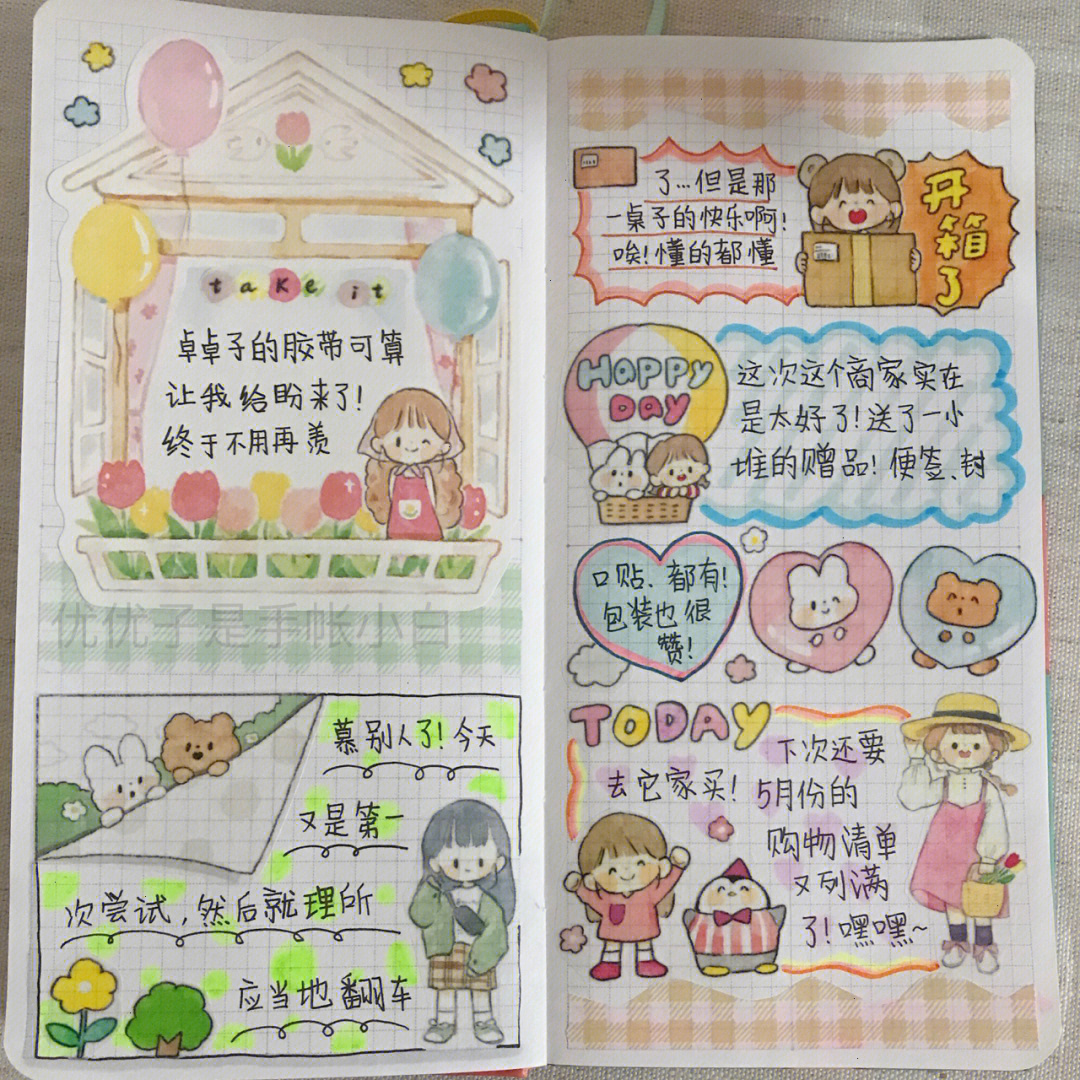 take it
卓卓子的胶带可算
让我给盼来了!
终于不用再羡
优优子是手帐小白
慕别人了!今天
又是第一
次尝试,然后就理所
应当地翻车
了…但是那
一桌子的快乐啊!
唉!懂的都懂
开
箱
了
HAPPY
DAY
这次这个商家实在
是太好了!送了一小
堆的赠品!便签、封
口贴、都有!
包装也很
赞!
TODAY
下次还要
去它家买!5月份的
购物清单
又列满
了!嘿嘿~